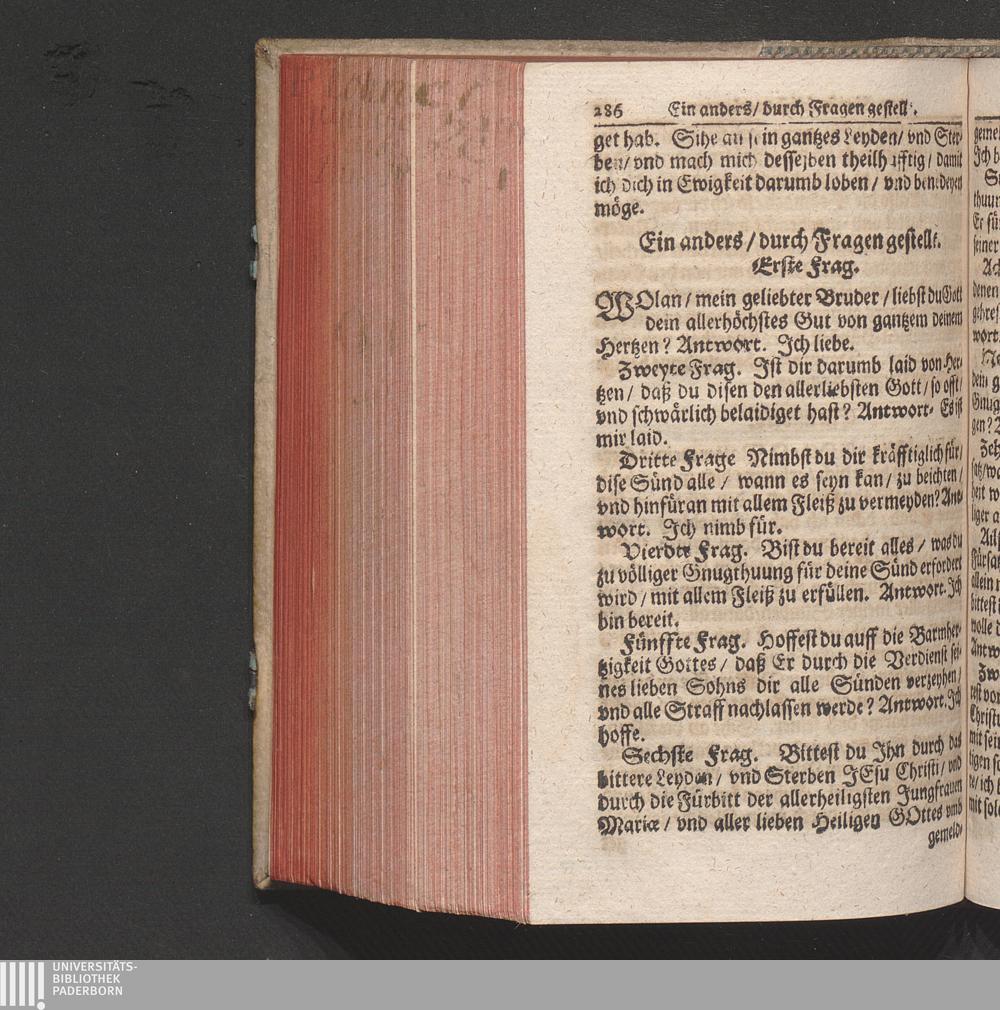 286 Ein anders/ durch Fragen gestellt.
get hab. Sihe an sein gantzes Leyden/ vnd Ster-
ben/ vnd mach mich dessejben theilhafftig/ damit
ich dich in Ewigkeit darumb loben/ vnd benedeyen
möge.
Ein anders/ durch Fragen gestellt.
Erste Frag.
WOlan/ mein geliebter Bruder/ liebst du Gott
dein allerhöchstes Gut von gantzem deinem
Hertzen? Antwort. Ich liebe.
Zweyte Frag. Ist dir darumb laid von Her-
tzen/ daß du disen den allerliebsten Gott/ so offt/
vnd schwärlich belaidiget hast? Antwort. Es ist
mir laid.
Dritte Frage Nimbst du dir kräfftiglich für/
dise Sünd alle/ wann es seyn kan/ zu beichten/
vnd hinfüran mit allem Fleiß zu vermeyden? Ant-
wort. Ich nimb für.
Vierdte Frag. Bist du bereit alles/ was du
zu völliger Gnugthuung für deine Sünd erfordert
wird/ mit allem Fleiß zu erfüllen. Antwort. Ich
bin bereit.
Fünffte Frag. Hoffest du auff die Barmher-
tzigkeit Gottes/ daß Er durch die Verdienst sei-
nes lieben Sohns dir alle Sünden verzeyhen/
vnd alle Straff nachlassen werde? Antwort. Ich
hoffe.
Sechste Frag. Bittest du Ihn durch das
bittere Leyden/ vnd Sterben JEsu Christi/ vnd
durch die Fürbitt der allerheiligsten Jungfrauen
Mariæ/ vnd aller lieben Heiligen GOttes vmb
gemeld-
UNIVERSITÄTS-
BIBLIOTHEK
PADERBORN